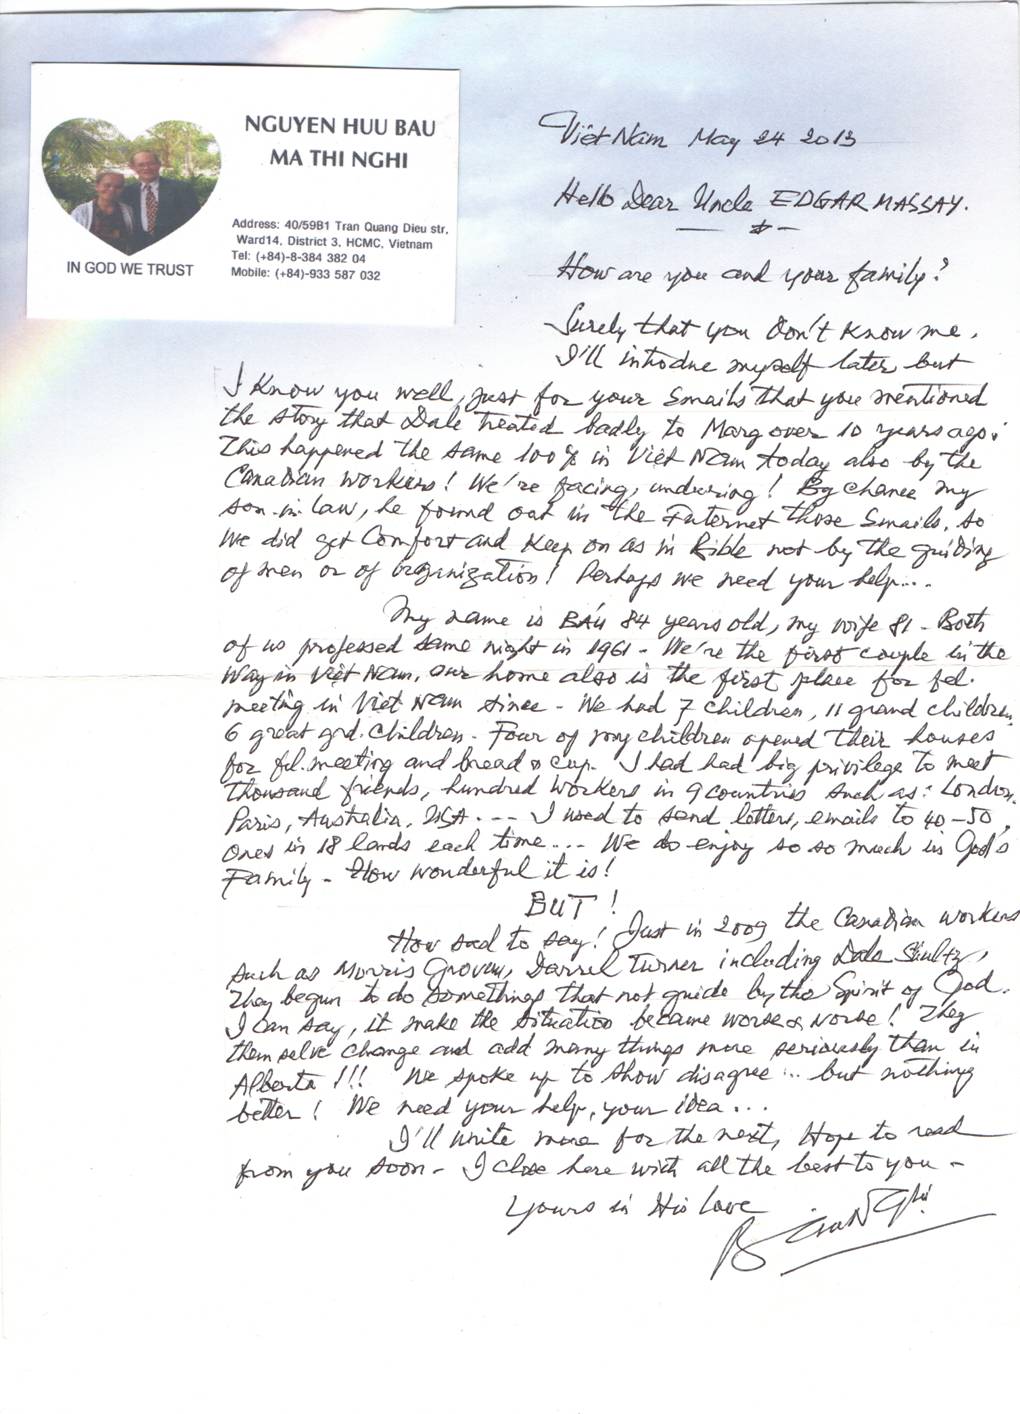 NGUYEN HUU BAU
MA THI NGHI
Address: 40/59B1 Tran Quang Dieu str,
Ward14, District 3, HCMC, Vietnam
Tel: (+84)-8-384 382 04
Mobile: (+84)-933 587 032
IN GOD WE TRUST
Việt Nam May 24 2013
Hello Dear Uncle EDGAR MASSAY.
How are you and your family?
Surely that you don't know me.
I'll introdue myself later but
I know you well, just for your Emails that you mentioned
the story that Dale treated badly to Marg over 10 years ago.
This happened the same 100% in Việt Nam today also by the
Canadian workers! We're facing, unduring! By chance my
son-in-law, he found out in the Internet those Emails. so
We did get Comfort and Keep on as in Bible not by the guiding
of men or of organization! Perhaps we need your help...
My name is BÁU 84 years old, my wife 81 - Both
of us professed same night in 1961 - We're the first couple in the
Way in Việt Nam, our home also is the first place for fel.
meeting in Việt Nam since - We had 7 children, 11 grand children,
6 great grd. children - Four of my children opened their houses
for fel. meeting and bread & cup. I had had big privilege to meet
thousand friends, hundred workers in 9 countries such as: London,
Paris, Australia, USA... I used to send letters, emails to 40-50
Ones in 18 lands each time... We do enjoy so so much in God's
Family - How wonderful it is!
BUT!
How sad to say! Just in 2009 the Canadian workers
such as Morris Grovum, Darrel Turner including Dale Shultz,
They begun to do somethings that not guide by the Spirit of God.
I can say, it make the situation became worse & worse! They
themselve change and add many things more seriously than in
Alberta!!! We spoke up to show disagree... but nothing
better! We need your help, your idea...
I'll write more for the next, Hope to read
from you soon - I close here with all the best to you -
Yours in His love